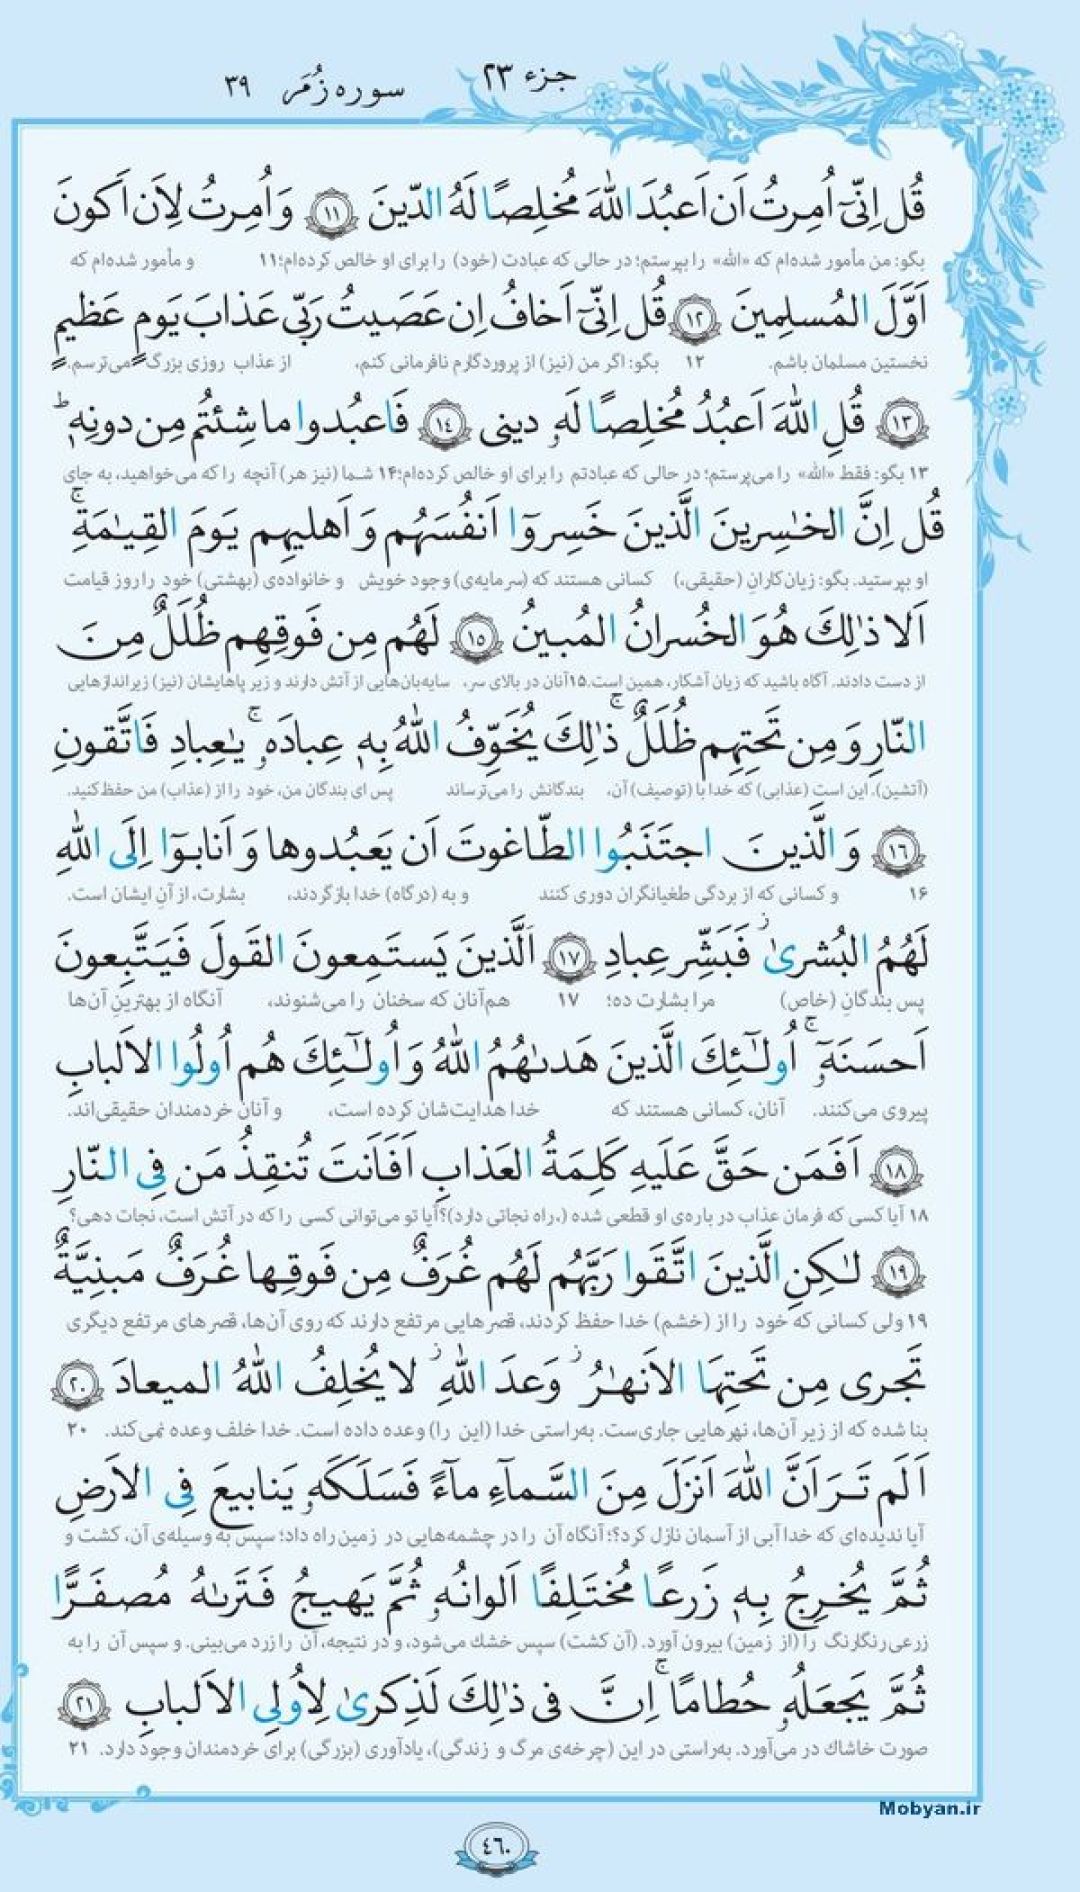 جزء ۲۳
سوره زُمَر ۳۹
قُل اِنّیٓ اُمِرتُ اَن اَعبُدَ اللّٰهَ مُخلِصًا لَهُ الدّینَ ﴿۱۱﴾ وَ اُمِرتُ لِاَن اَکونَ
بگو: من مأمور شده‌ام که «الله» را بپرستم؛ در حالی که عبادت (خود) را برای او خالص کرده‌ام؛۱۱ و مأمور شده‌ام که
اَوَّلَ المُسلِمینَ ﴿۱۲﴾ قُل اِنّیٓ اَخافُ اِن عَصَیتُ رَبّی عَذابَ یَومٍ عَظیمٍ
نخستین مسلمان باشم. ۱۲ بگو: اگر من (نیز) از پروردگارم نافرمانی کنم، از عذاب روزی بزرگ می‌ترسم.
﴿۱۳﴾ قُلِ اللّٰهَ اَعبُدُ مُخلِصًا لَهٗ دینی ﴿۱٤﴾ فَاعبُدوا ما شِئتُم مِن دونِهٖ ؕ
۱۳ بگو: فقط «الله» را می‌پرستم؛ در حالی که عبادتم را برای او خالص کرده‌ام؛۱۴ شما (نیز هر) آنچه را که می‌خواهید، به جای
قُل اِنَّ الخٰسِرینَ الَّذینَ خَسِروٓا اَنفُسَهُم وَ اَهلیهِم یَومَ القِیٰمَةِ ۚ
او بپرستید. بگو: زیان‌کارانِ (حقیقی،) کسانی هستند که (سرمایه‌ی) وجود خویش و خانواده‌ی (بهشتی) خود را روز قیامت
اَلا ذٰلِکَ هُوَ الخُسرانُ المُبینُ ﴿۱۵﴾ لَهُم مِن فَوقِهِم ظُلَلٌ مِنَ
از دست دادند. آگاه باشید که زیان آشکار، همین است.۱۵ آنان در بالای سر، سایه‌بان‌هایی از آتش دارند و زیر پاهایشان (نیز) زیراندازهایی
النّارِ وَ مِن تَحتِهِم ظُلَلٌ ۚ ذٰلِکَ یُخَوِّفُ اللّٰهُ بِهٖ عِبادَهٗ ۚ یٰعِبادِ فَاتَّقونِ
(آتشین). این است (عذابی) که خدا با (توصیف) آن، بندگانش را می‌ترساند پس ای بندگان من، خود را از (عذاب) من حفظ کنید.
﴿۱۶﴾ وَ الَّذینَ اجتَنَبُوا الطّاغوتَ اَن یَعبُدوها وَ اَنابوٓا اِلَی اللّٰهِ
۱۶ و کسانی که از بردگی طغیانگران دوری کنند و به (درگاه) خدا بازگردند، بشارت، از آنِ ایشان است.
لَهُمُ البُشریٰ ۚ فَبَشِّر عِبادِ ﴿۱۷﴾ اَلَّذینَ یَستَمِعونَ القَولَ فَیَتَّبِعونَ
پس بندگانِ (خاص) مرا بشارت ده؛ ۱۷ هم‌آنان که سخنان را می‌شنوند، آنگاه از بهترین آن‌ها
اَحسَنَهٗٓ ۚ اُولٰٓئِکَ الَّذینَ هَدىٰهُمُ اللّٰهُ وَ اُولٰٓئِکَ هُم اُولُوا الاَلبابِ
پیروی می‌کنند. آنان، کسانی هستند که خدا هدایت‌شان کرده است، و آنان خردمندان حقیقی‌اند.
﴿۱۸﴾ اَفَمَن حَقَّ عَلَیهِ کَلِمَةُ العَذابِ اَفَاَنتَ تُنقِذُ مَن فِی النّارِ
۱۸ آیا کسی که فرمان عذاب در باره‌ی او قطعی شده (،راه نجاتی دارد)؟ آیا تو می‌توانی کسی را که در آتش است، نجات دهی؟
﴿۱۹﴾ لٰکِنِ الَّذینَ اتَّقَوا رَبَّهُم لَهُم غُرَفٌ مِن فَوقِها غُرَفٌ مَبنِیَّةٌ
۱۹ ولی کسانی که خود را از (خشم) خدا حفظ کردند، قصرهایی مرتفع دارند که روی آن‌ها، قصرهای مرتفع دیگری
تَجری مِن تَحتِهَا الاَنهٰرُ ؗ وَعدَ اللّٰهِ ؗ لا یُخلِفُ اللّٰهُ المیعادَ ﴿۲۰﴾
بنا شده که از زیر آن‌ها، نهرهایی جاری‌ست. به‌راستی خدا (این را) وعده داده است. خدا خلف وعده نمی‌کند. ۲۰
اَلَم تَرَ اَنَّ اللّٰهَ اَنزَلَ مِنَ السَّمآءِ مآءً فَسَلَکَهٗ یَنابیعَ فِی الاَرضِ
آیا ندیده‌ای که خدا آبی از آسمان نازل کرد؟؛ آنگاه آن را در چشمه‌هایی در زمین راه داد؛ سپس به وسیله‌ی آن، کشت و
ثُمَّ یُخرِجُ بِهٖ زَرعًا مُختَلِفًا اَلوانُهٗ ثُمَّ یَهیجُ فَتَرىٰهُ مُصفَرًّا
زرعی رنگارنگ را (از زمین) بیرون آورد. (آن کشت) سپس خشك می‌شود، و در نتیجه، آن را زرد می‌بینی. و سپس آن را به
ثُمَّ یَجعَلُهٗ حُطامًا ۚ اِنَّ فی ذٰلِکَ لَذِکریٰ لِاُولِی الاَلبابِ ﴿۲۱﴾
صورت خاشاك در می‌آورد. به‌راستی در این (چرخه‌ی مرگ و زندگی)، یادآوری (بزرگی) برای خردمندان وجود دارد. ۲۱
Mobyan.ir
٤٦٠